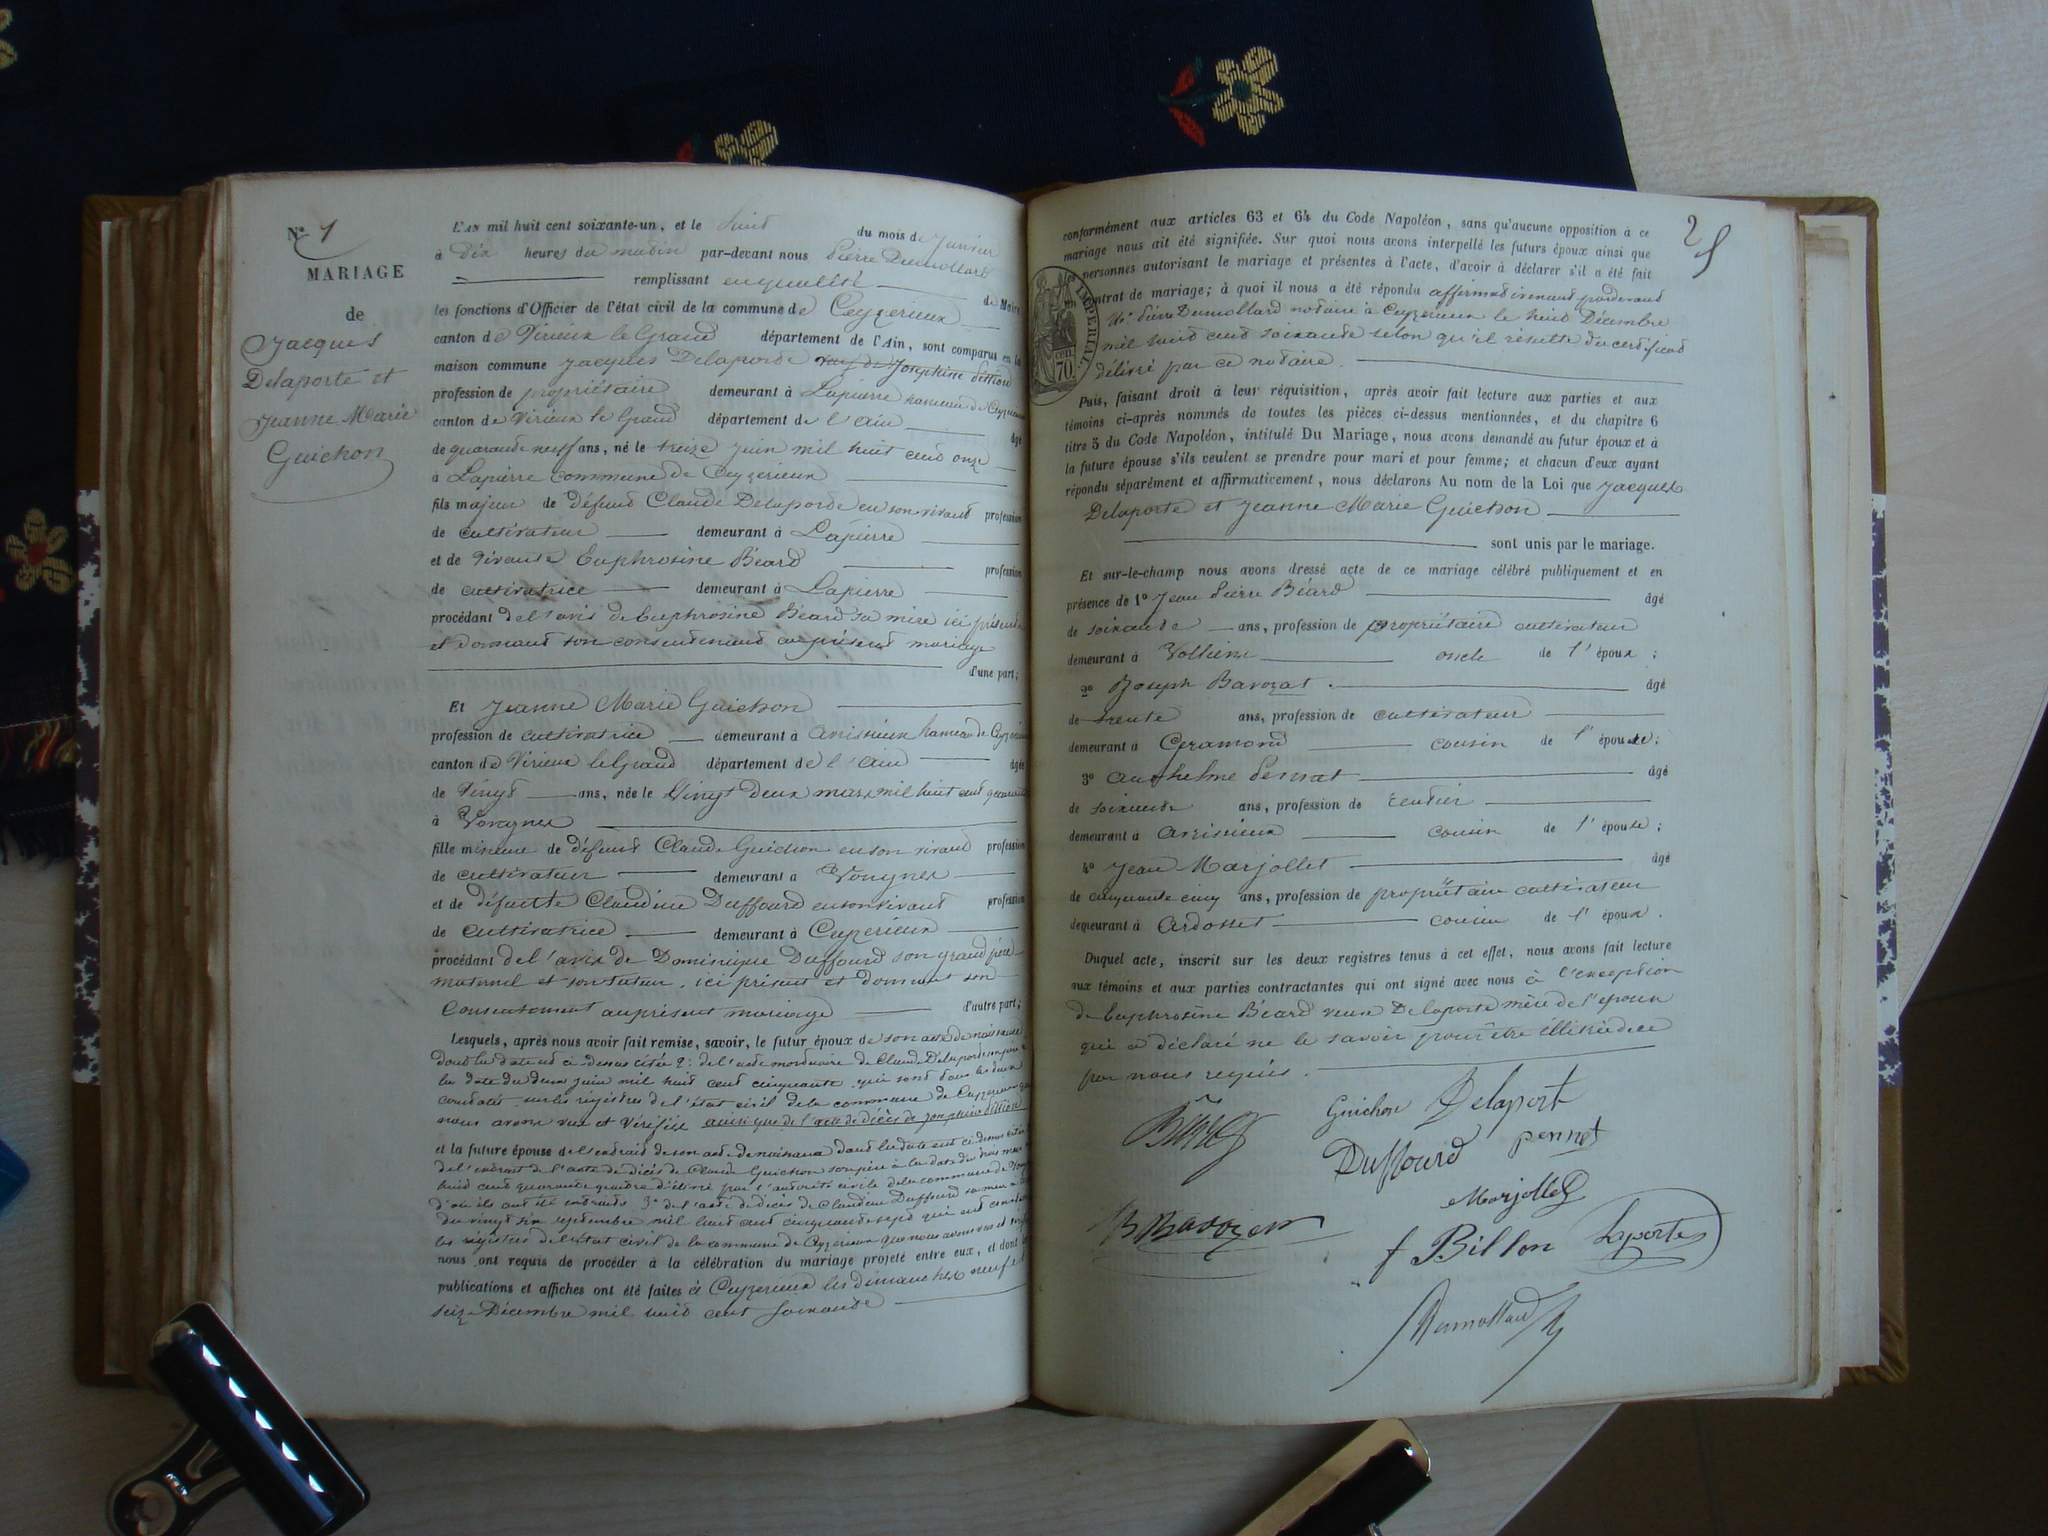 N.° 1
MARIAGE
de
Jacques
Delaporte et
Jeanne Marie
Guichon
L'AN mil huit cent soixante-un, et le huit du mois de Janvier
à Dix heures du matin par-devant nous Pierre Dumollard
remplissant en qualité de Maire
les fonctions d'Officier de l'état civil de la commune de Ceyzerieux
canton de Virieux le Grand département de l'Ain, sont comparus en la
maison commune Jacques Delaporte veuf de Josephine Billion
profession de propriétaire demeurant à Lapierre hameau de Ceyzerieux
canton de Virieux le Grand département de l'ain âgé
de quarante neuf ans, né le treize Juin mil huit cent onze
à Lapierre Commune de Ceyzerieux
fils majeur de défunt Claude Delaporte en son vivant profession
de cultivateur demeurant à Lapierre
et de vivante Euphrosine Béard profession
de cultivatrice demeurant à Lapierre
procédant de l'avis de Euphrosine Béard sa mère ici présente
et donnant son consentement au présent mariage
d'une part;
Et Jeanne Marie Guichon
profession de cultivatrice demeurant à Avrissieux hameau de Ceyzerieux
canton de Virieux le Grand département de l'ain âgée
de vingt ans, née le vingt Deux mars mil huit cent quarante
à Vongnes
fille mineure de défunt Claude Guichon en son vivant profession
de cultivateur demeurant à Vongnes
et de défunte Claudine Duffourd en son vivant profession
de cultivatrice demeurant à Ceyzerieux
procédant de l'avis de Dominique Duffourd son grand père
maternel et son tuteur, ici présent et donnant son
Consentement au présent mariage d'autre part;
Lesquels, après nous avoir fait remise, savoir, le futur époux de son acte de naissance
dont la date est ci dessus citée 2° de l'acte mortuaire de Claude Delaporte son père à
la date du deux juin mil huit cent cinquante qui sont tous les deux
constatés sur les registres de l'état civil de la commune de Ceyzerieux que
nous avons vus et vérifiés ainsi que de l'acte de décès de Josephine Billion
et la future épouse de l'extrait de son acte de naissance dont la date est ci dessus citée
de l'extrait de l'acte de décès de Claude Guichon son père à la date du trois mars mil
huit cent quarante quatre délivré par l'autorité civile de la commune de Vongnes
d'où ils ont été extraits 3° de l'acte de décès de Claudine Duffourd sa mère à la date
du vingt six septembre mil huit cent cinquante sept qui est constaté sur
les registres de l'état civil de la commune de Ceyzerieux que nous avons vus et vérifiés
nous ont requis de procéder à la célébration du mariage projeté entre eux, et dont les
publications et affiches ont été faites à Ceyzerieux les dimanches neuf et
seize Décembre mil huit cent soixante
2
conformément aux articles 63 et 64 du Code Napoléon, sans qu'aucune opposition à ce
mariage nous ait été signifiée. Sur quoi nous avons interpellé les futurs époux ainsi que
les personnes autorisant le mariage et présentes à l'acte, d'avoir à déclarer s'il a été fait
contrat de mariage; à quoi il nous a été répondu affirmativement pardevant
M.e Pierre Dumollard notaire à Ceyzerieux le huit Décembre
mil huit cent soixante selon qu'il résulte du certificat
délivré par ce notaire.
IMPERIAL
70 cen
Puis, faisant droit à leur réquisition, après avoir fait lecture aux parties et aux
témoins ci-après nommés de toutes les pièces ci-dessus mentionnées, et du chapitre 6
titre 5 du Code Napoléon, intitulé Du Mariage, nous avons demandé au futur époux et à
la future épouse s'ils veulent se prendre pour mari et pour femme; et chacun d'eux ayant
répondu séparément et affirmativement, nous déclarons Au nom de la Loi que Jacques
Delaporte et Jeanne Marie Guichon
sont unis par le mariage.
Et sur-le-champ nous avons dressé acte de ce mariage célébré publiquement et en
présence de 1° Jean Pierre Béard âgé
de soixante ans, profession de propriétaire cultivateur
demeurant à Vollien oncle de l'époux;
2° Joseph Bavozat âgé
de trente ans, profession de cultivateur
demeurant à Ceramond cousin de l'épouse;
3° Anthelme Pernat âgé
de soixante ans, profession de rentier
demeurant à Avrissieux cousin de l'épouse;
4° Jean Marjollet âgé
de cinquante cinq ans, profession de propriétaire cultivateur
demeurant à Ardosset cousin de l'époux.
Duquel acte, inscrit sur les deux registres tenus à cet effet, nous avons fait lecture
aux témoins et aux parties contractantes qui ont signé avec nous à l'exception
de Euphrosine Béard veuve Delaporte mère de l'époux
qui a déclaré ne le savoir pour être illitérée de ce
par nous requis.
Guichon Delaport
Duffourd pernet
Marjollet
f Billon Laporte
Dumollard